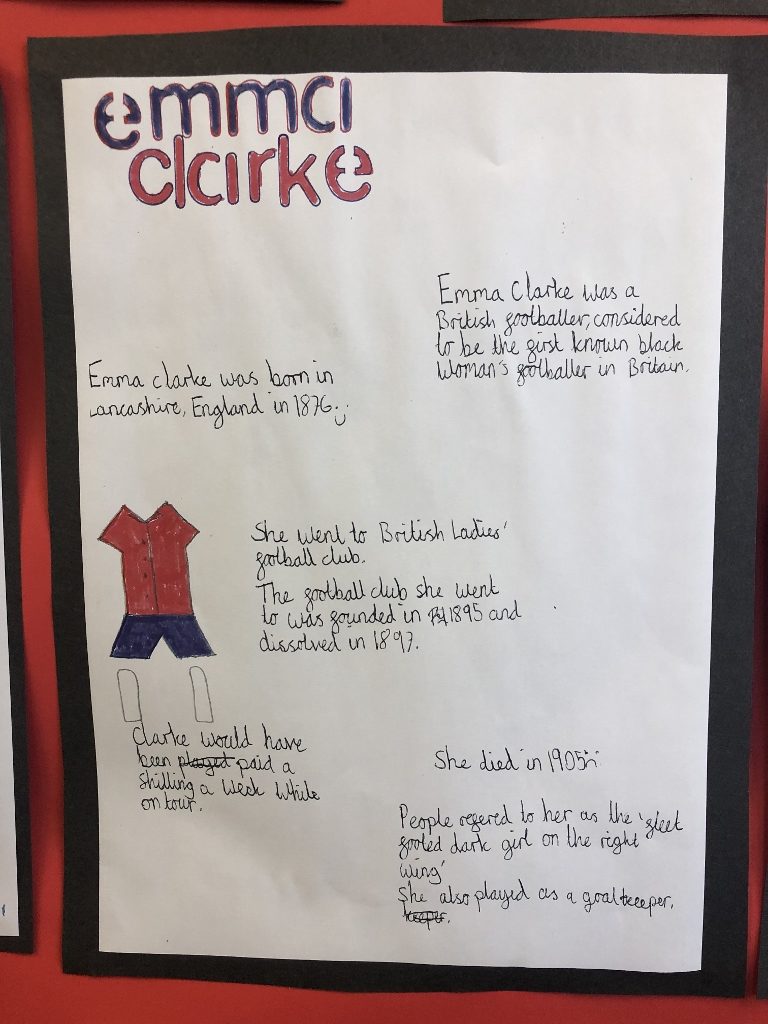 emma
clarke
Emma Clarke was a
British footballer, considered
to be the first known black
Woman's footballer in Britain.
Emma clarke was born in
Lancashire, England in 1876.
She went to British Ladies'
football club.
The football club she went
to was founded in 1895 and
dissolved in 1897.
Clarke would have
been played paid a
shilling a week while
on tour.
She died in 1905
People refered to her as the 'fleet
footed dark girl on the right
wing'
She also played as a goalkeeper.
keeper.